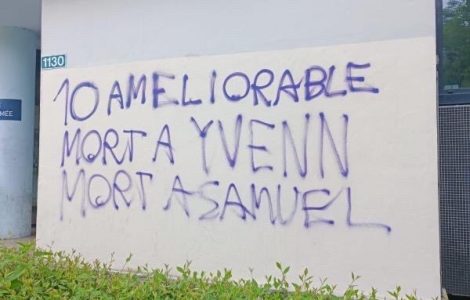 1130
10 AMELIORABLE
MORT A YVENN
MORT A SAMUEL
MÉE